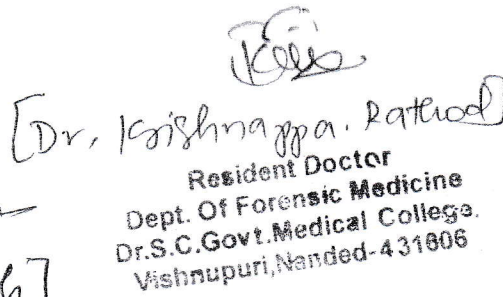 [Dr. Krishnappa. Rathod]
Resident Doctor
Dept. Of Forensic Medicine
Dr.S.C.Govt.Medical College.
Vishnupuri,Nanded-431606